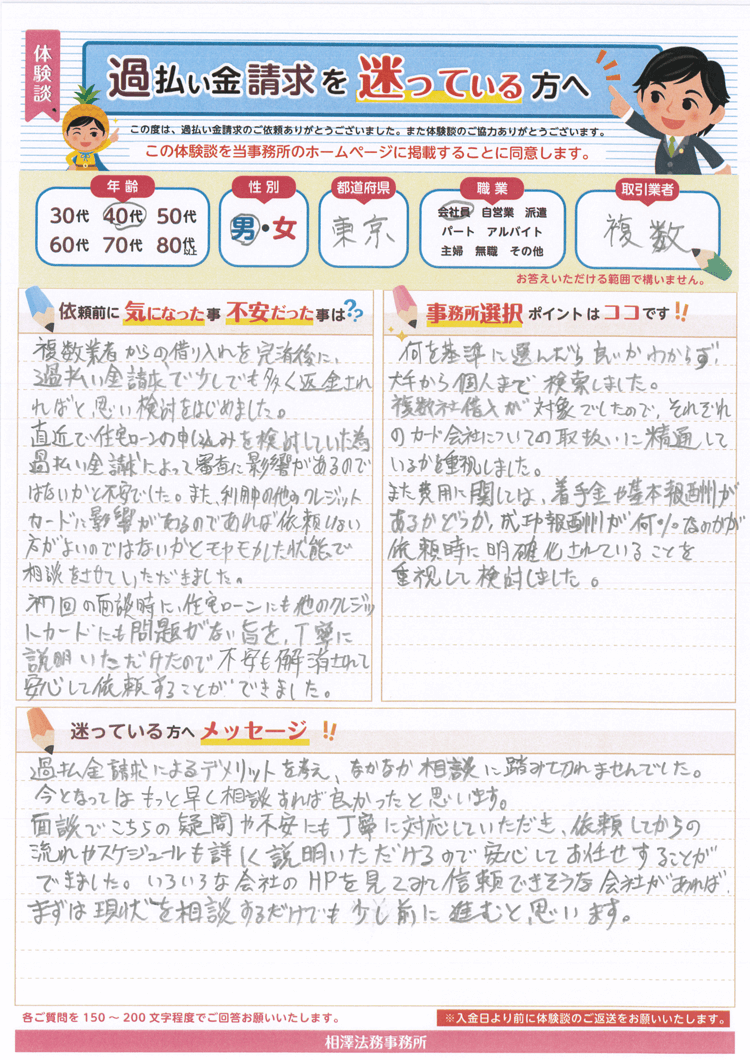 体験談
過払い金請求を迷っている方へ
この度は、過払い金請求のご依頼ありがとうございました。また体験談のご協力ありがとうございます。
この体験談を当事務所のホームページに掲載することに同意します。
年齢
30代 40代 50代
60代 70代 80代以上
性別
男・女
都道府県
東京
職業
会社員 自営業 派遣
パート アルバイト
主婦 無職 その他
取引業者
複数
お答えいただける範囲で構いません。
依頼前に気になった事 不安だった事は??
複数業者からの借り入れを完済後に、
過払い金請求で少しでも多く返金され
ればと思い検討をはじめました。
直近で住宅ローンの申し込みを検討していた為
過払い金請求によって審査に影響があるので
はないかと不安でした。また、利用中の他のクレジット
カードに影響があるのであれば依頼しない
方がよいのではないかとモヤモヤした状態で
相談をさせていただきました。
初回の面談時に、住宅ローンにも他のクレジッ
トカードにも問題がない旨を、丁寧に
説明いただけたので不安も解消されて
安心して依頼することができました。
事務所選択ポイントはココです!!
何を基準に選んだら良いかわからず、
大手から個人まで検索しました。
複数社借入が対象でしたので、それぞれ
のカード会社についての取扱いに精通して
いるかを重視しました。
また費用に関しては、着手金や基本報酬が
あるかどうか、成功報酬が何%なのかが
依頼時に明確化されていることを
重視して検討しました。
迷っている方へメッセージ!!
過払金請求によるデメリットを考え、なかなか相談に踏み切れませんでした。
今となってはもっと早く相談すれば良かったと思います。
面談でこちらの疑問や不安にも丁寧に対応していただき、依頼してからの
流れやスケジュールも詳しく説明いただけるので安心してお任せすることが
できました。いろいろな会社のHPを見てみて信頼できそうな会社があれば、
まずは現状を相談するだけでも少し前に進むと思います。
各ご質問を150～200文字程度でご回答お願いいたします。
※入金日より前に体験談のご返送をお願いいたします。
相澤法務事務所